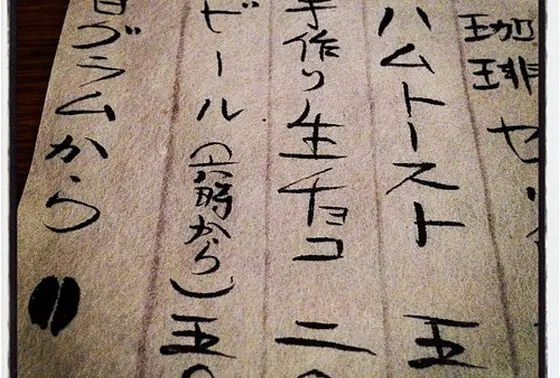 珈琲 セッ
ハムトースト 五
手作り生チョコ 二〇
ビール(六時から) 五〇
百グラムから